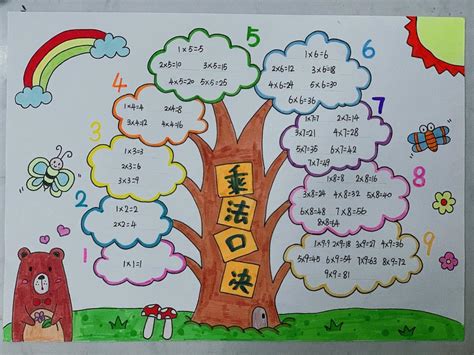 5
1×5=5
2×5=10 3×5=15
4×5=20 5×5=25
6
1×6=6
2×6=12 3×6=18
4×6=24 5×6=30
6×6=36
4
1×4=4 2×4=8
3×4=12 4×4=16
7
1×7=7 2×7=14
3×7=21 4×7=28
5×7=35 6×7=42
7×7=49
3
1×3=3
2×3=6
3×3=9
8
1×8=8 2×8=16
3×8=24 4×8=32 5×8=40
6×8=48 7×8=56
8×8=64
2
1×2=2
2×2=4
9
1×9=9 2×9=18 3×9=27 4×9=36
5×9=45 6×9=54 7×9=63 8×9=72
9×9=81
1
1×1=1
乘
法
口
决